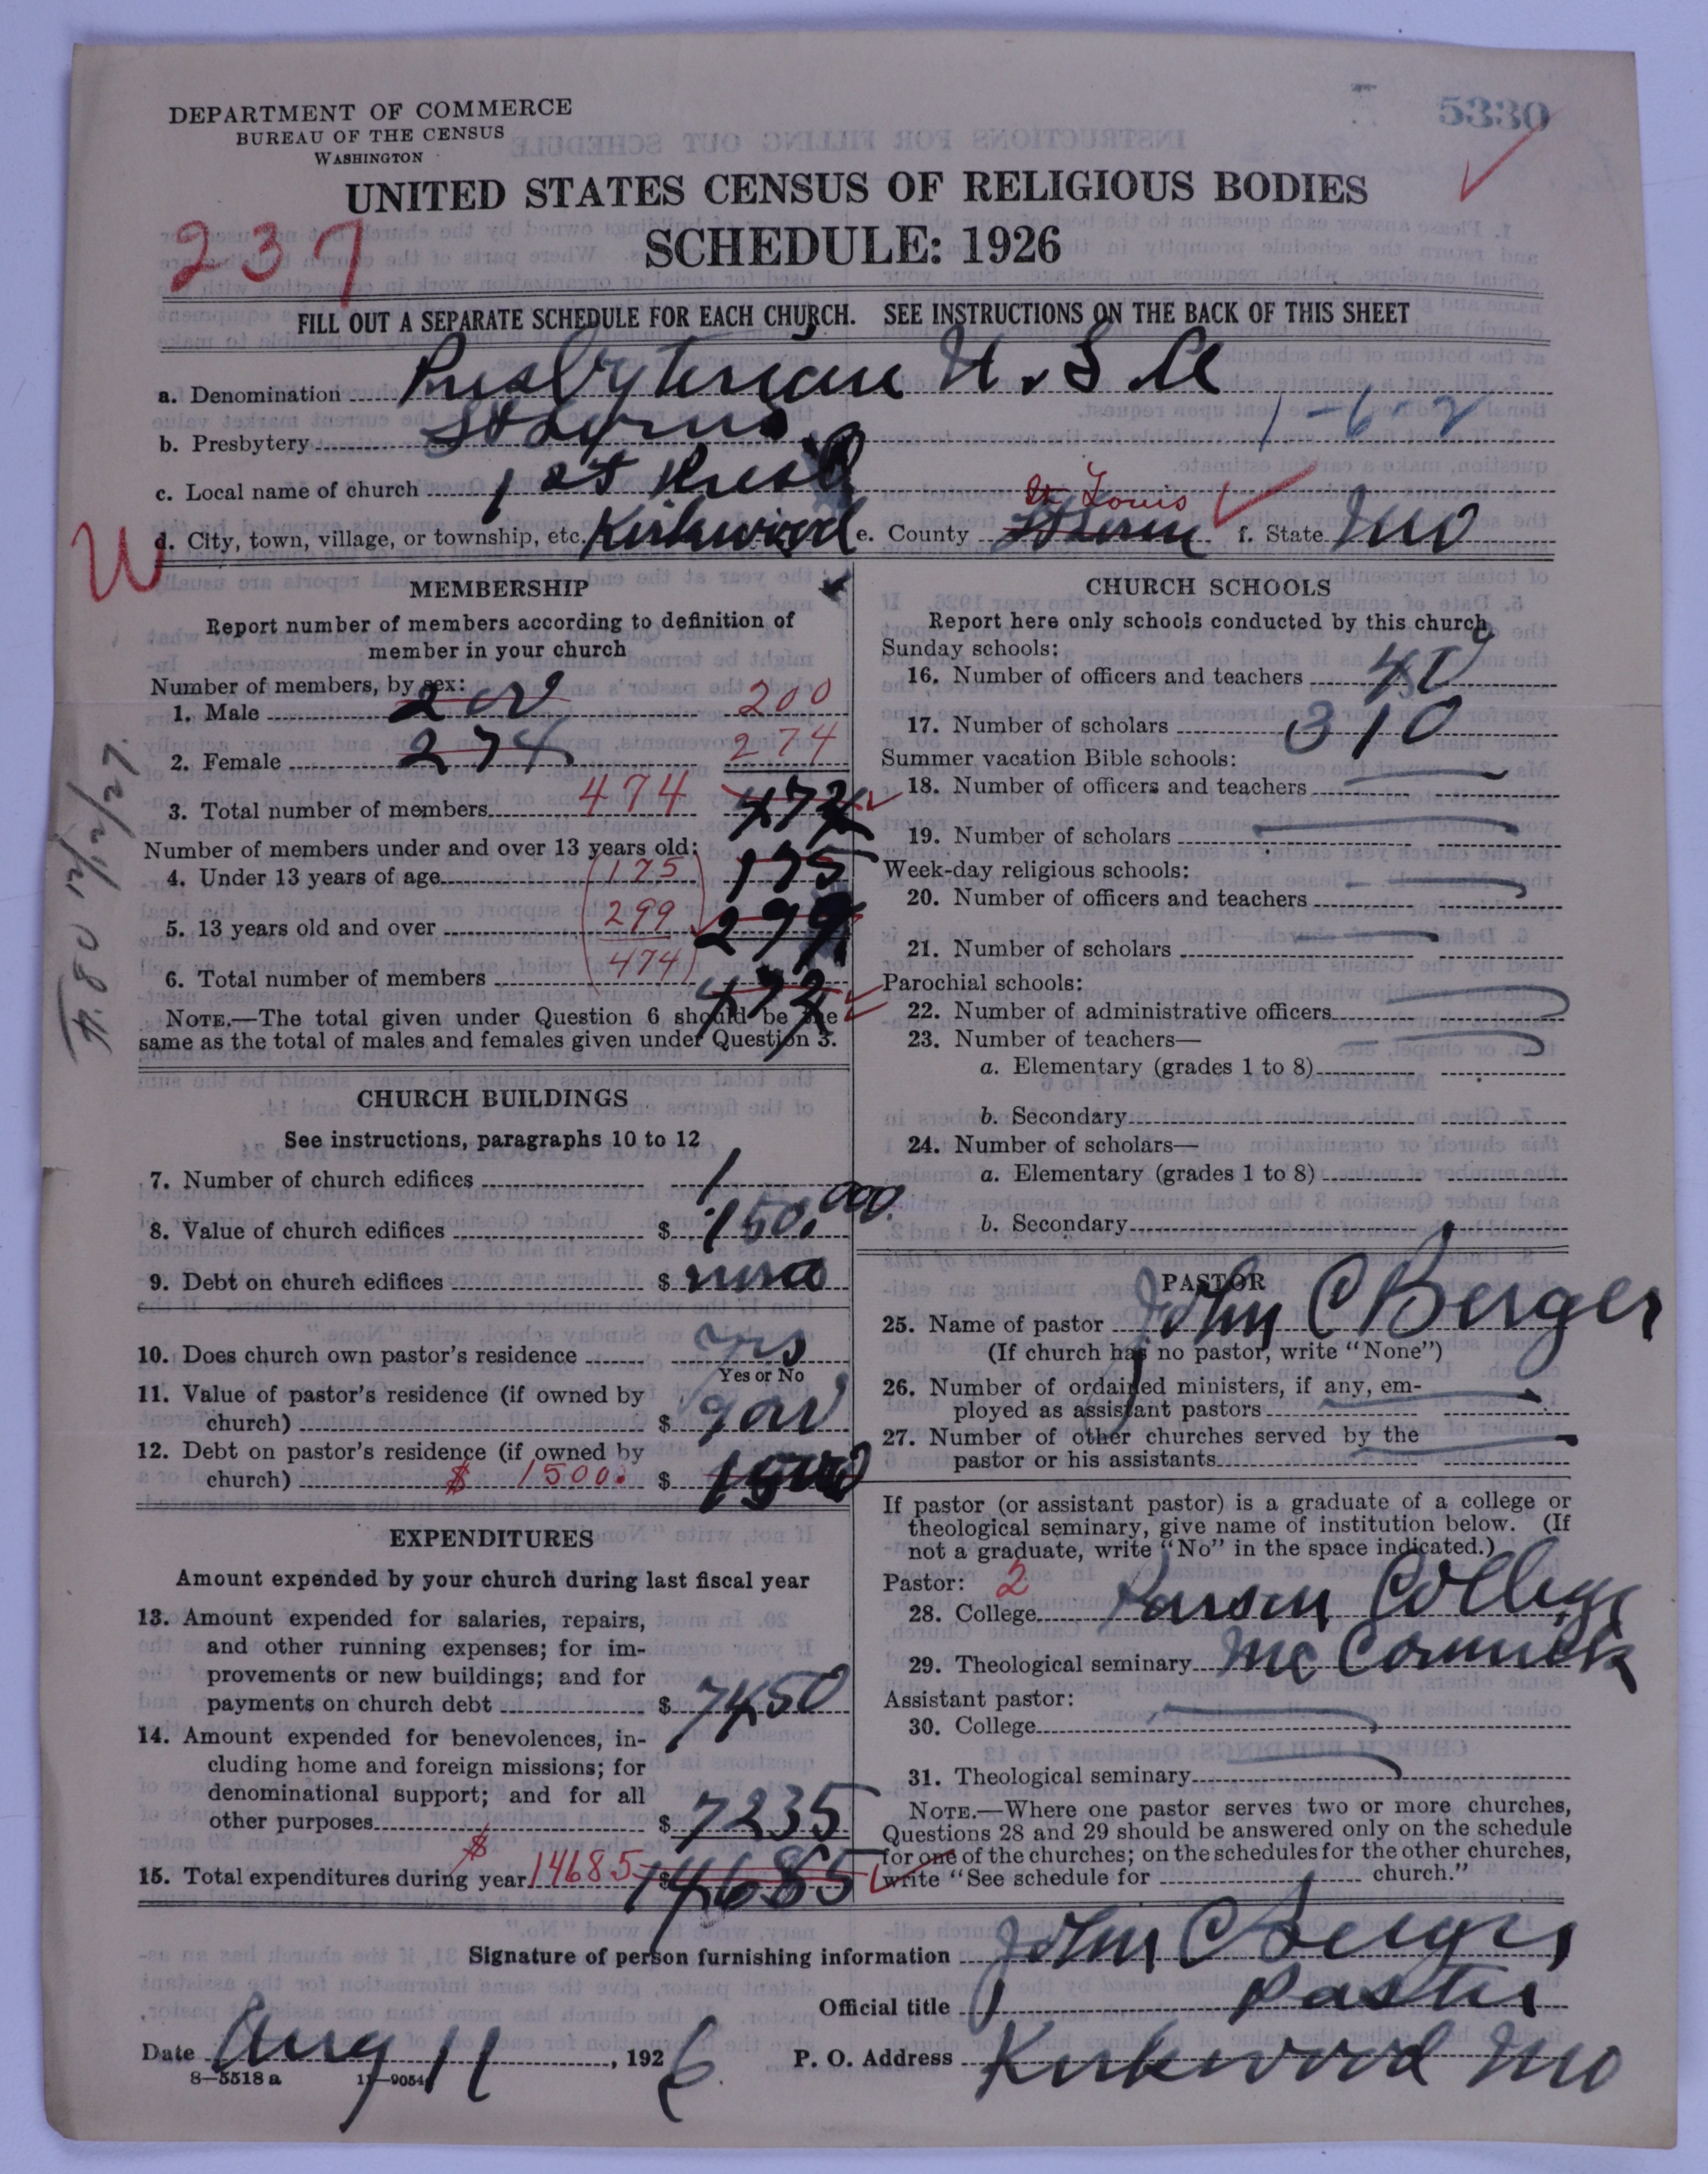 DEPARTMENT OF COMMERCE
BUREAU OF THE CENSUS
WASHINGTON
5330
UNITED STATES CENSUS OF RELIGIOUS BODIES
SCHEDULE: 1926
237
FILL OUT A SEPARATE SCHEDULE FOR EACH CHURCH. SEE INSTRUCTIONS ON THE BACK OF THIS SHEET
a. Denomination Presbyterian U.S.A
b. Presbytery St Louis 1-6-2
c. Local name of church 1st Presb
St Louis
W
d. City, town, village, or township, etc. Kirkwood e. County St Louis f. State Mo
MEMBERSHIP
Report number of members according to definition of
member in your church
Number of members, by sex:
1. Male 200 200
2. Female 274 274
3. Total number of members 474 474
Number of members under and over 13 years old:
4. Under 13 years of age 175 175
5. 13 years old and over 299 299
6. Total number of members 474 474
NOTE.—The total given under Question 6 should be the
same as the total of males and females given under Question 3.
CHURCH BUILDINGS
See instructions, paragraphs 10 to 12
7. Number of church edifices 1
8. Value of church edifices $ 150,000.
9. Debt on church edifices $ none
10. Does church own pastor's residence yes
Yes or No
11. Value of pastor's residence (if owned by
church) $
12. Debt on pastor's residence (if owned by
church) $ 1500. $ 1500
EXPENDITURES
Amount expended by your church during last fiscal year
13. Amount expended for salaries, repairs,
and other running expenses; for im-
provements or new buildings; and for
payments on church debt $ 7450
14. Amount expended for benevolences, in-
cluding home and foreign missions; for
denominational support; and for all
other purposes $ 7235
15. Total expenditures during year $ 14685 $ 14685
CHURCH SCHOOLS
Report here only schools conducted by this church
Sunday schools:
16. Number of officers and teachers 40
17. Number of scholars 310
Summer vacation Bible schools:
18. Number of officers and teachers
19. Number of scholars
Week-day religious schools:
20. Number of officers and teachers
21. Number of scholars
Parochial schools:
22. Number of administrative officers
23. Number of teachers—
a. Elementary (grades 1 to 8)
b. Secondary
24. Number of scholars—
a. Elementary (grades 1 to 8)
b. Secondary
PASTOR
25. Name of pastor John C Berger
(If church has no pastor, write "None")
26. Number of ordained ministers, if any, em-
ployed as assistant pastors
27. Number of other churches served by the
pastor or his assistants
If pastor (or assistant pastor) is a graduate of a college or
theological seminary, give name of institution below. (If
not a graduate, write "No" in the space indicated.)
Pastor: 2
28. College Parson College
29. Theological seminary McCormick
Assistant pastor:
30. College
31. Theological seminary
NOTE.—Where one pastor serves two or more churches,
Questions 28 and 29 should be answered only on the schedule
for one of the churches; on the schedules for the other churches,
write "See schedule for church."
Signature of person furnishing information John C Berger
Official title Pastor
Date Aug 11, 1926 P. O. Address Kirkwood Mo
8—5518 a 11—9054